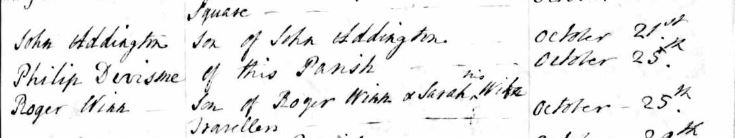 Square —
John Addington son of John Addington October 21st
Philip Devisme of this Parish — October 25th
Roger Winn — Son of Roger Winn & Sarah his Wife October — 25th
Travellers